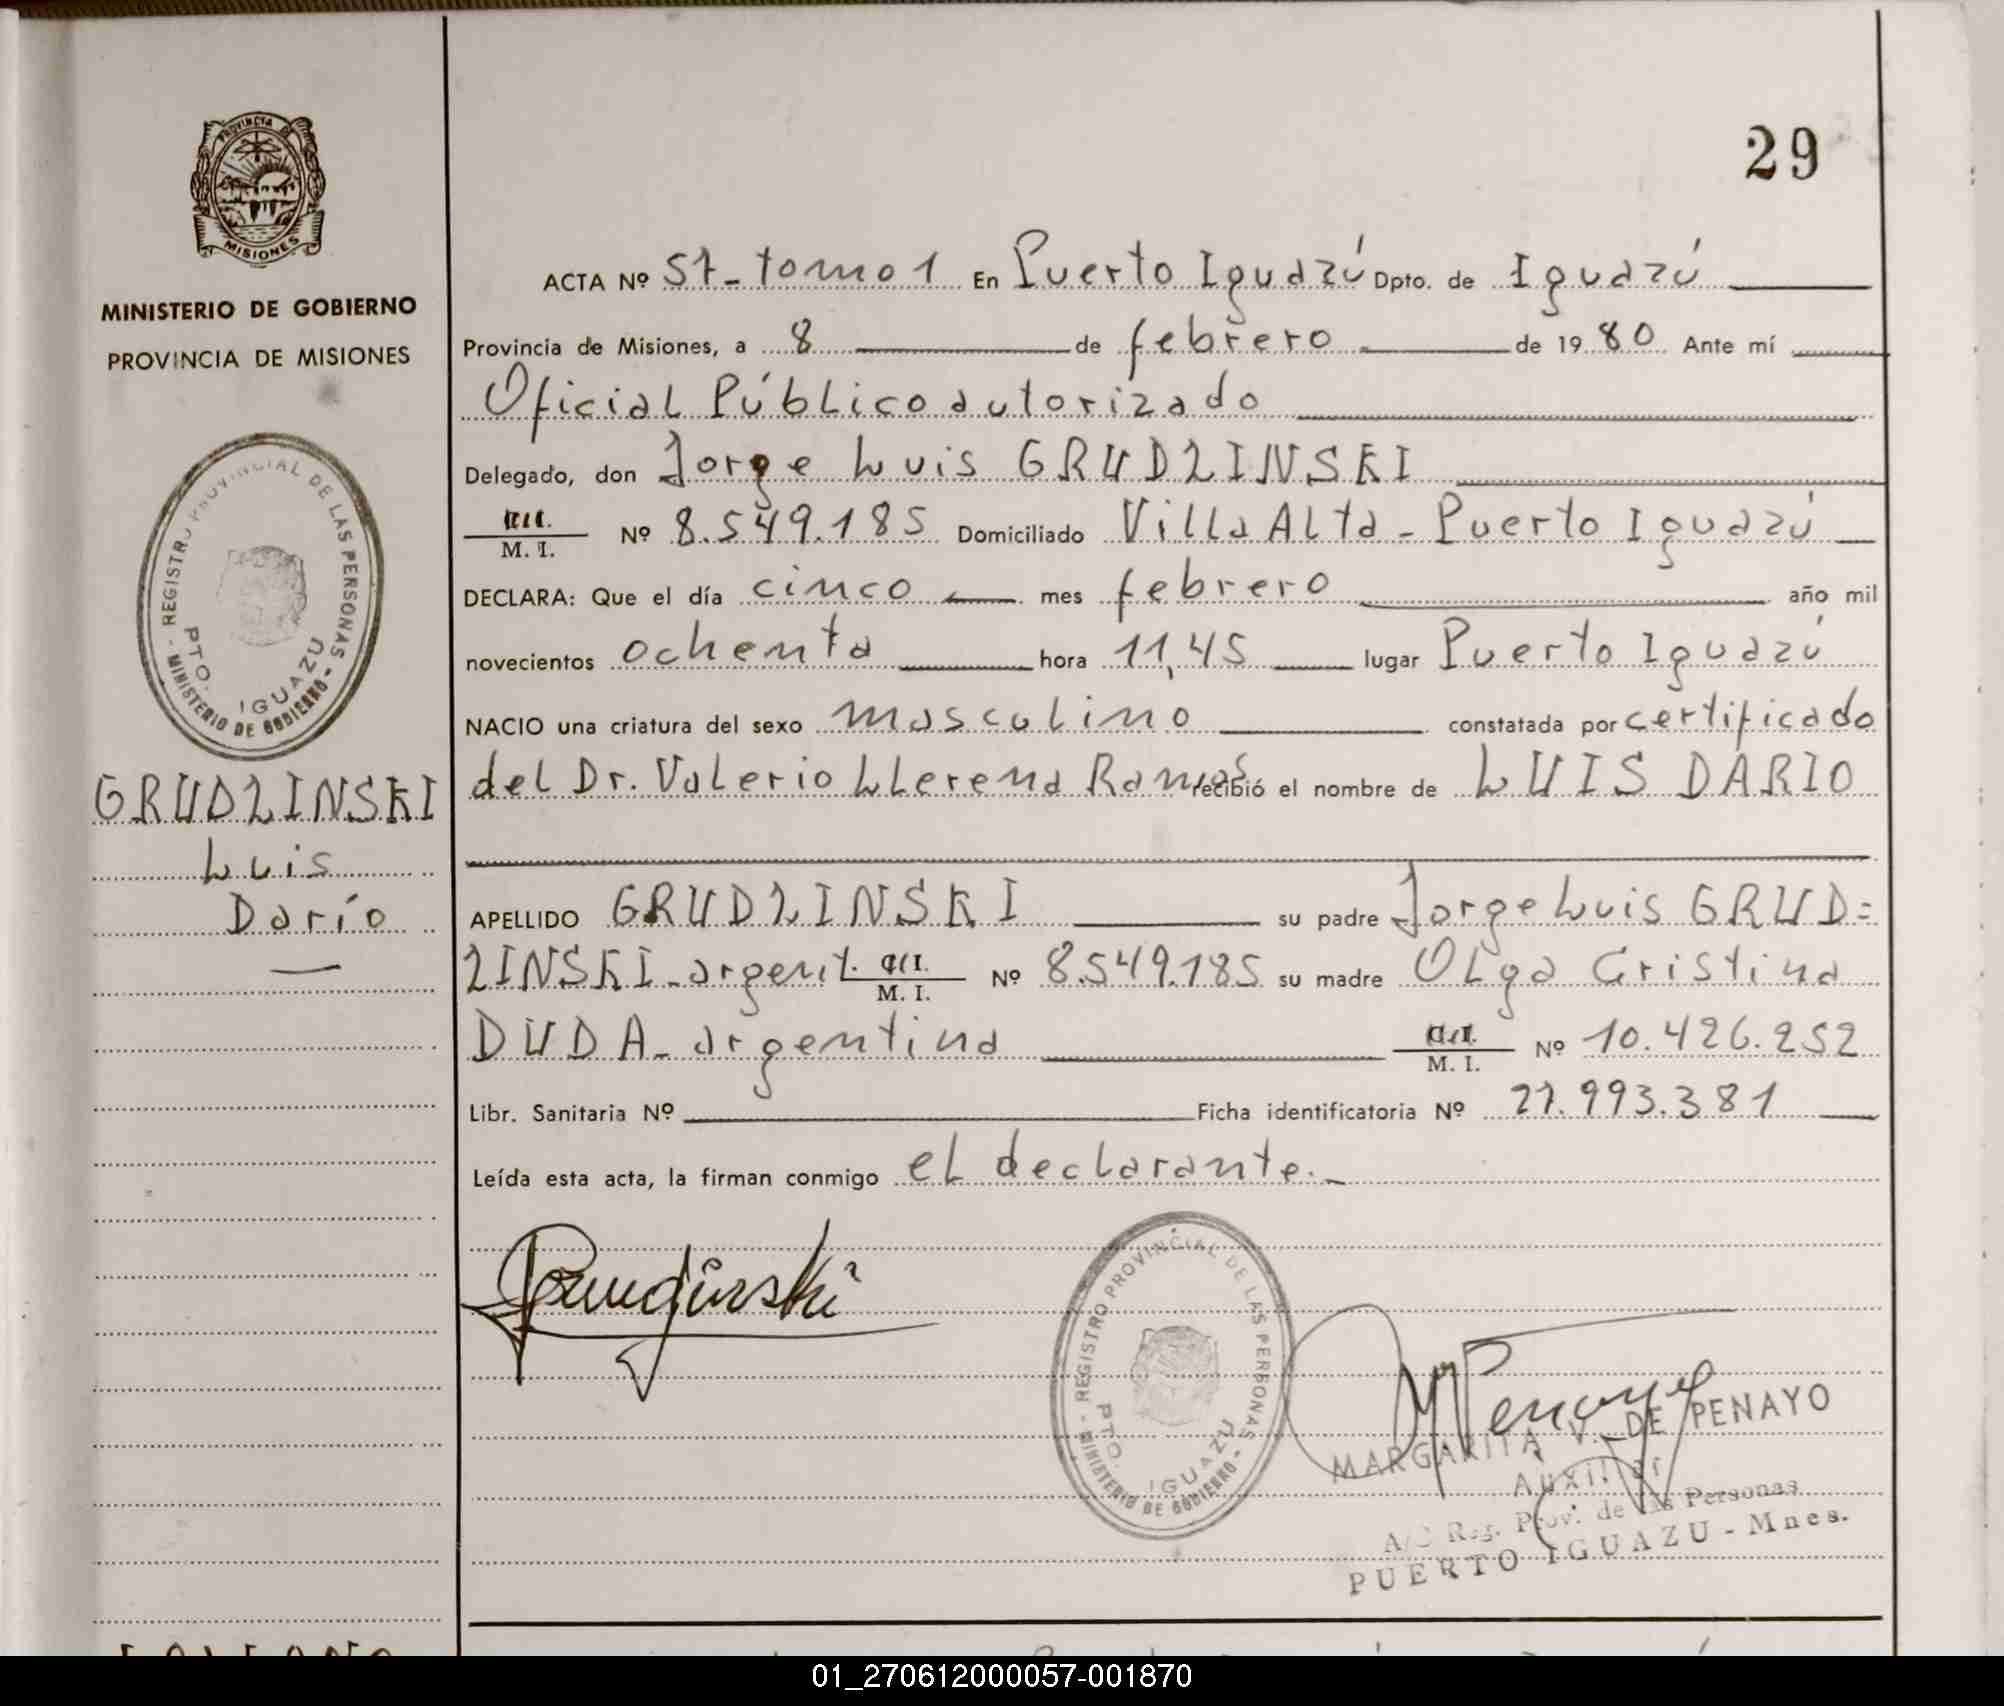 29
PROVINCIA DE
MISIONES
MINISTERIO DE GOBIERNO
PROVINCIA DE MISIONES
REGISTRO PROVINCIAL DE LAS PERSONAS
PTO. IGUAZU
- MINISTERIO DE GOBIERNO -
GRUDZINSKI
Luis
Darío
ACTA Nº 57_tomo 1 En Puerto Iguazú Dpto. de Iguazú
Provincia de Misiones, a 8 de febrero de 1980 Ante mí
Oficial Público autorizado
Delegado, don Jorge Luis GRUDZINSKI
M. I. Nº 8.549.185 Domiciliado Villa Alta - Puerto Iguazú
DECLARA: Que el día cinco mes febrero año mil
novecientos ochenta hora 11,45 lugar Puerto Iguazú
NACIO una criatura del sexo masculino constatada por certificado
del Dr. Valerio Llerena Ramos recibió el nombre de LUIS DARIO
APELLIDO GRUDZINSKI su padre Jorge Luis GRUD=
ZINSKI_argent. M. I. Nº 8.549.185 su madre Olga Cristina
DUDA_argentina M. I. Nº 10.426.252
Libr. Sanitaria Nº Ficha identificatoria Nº 27.993.381
Leída esta acta, la firman conmigo el declarante._
REGISTRO PROVINCIAL DE LAS PERSONAS
PTO. IGUAZU
- MINISTERIO DE GOBIERNO -
MPenayo
MARGARITA V. DE PENAYO
Auxiliar
A/C Reg. Prov. de las Personas
PUERTO IGUAZU - Mnes.
01_270612000057-001870